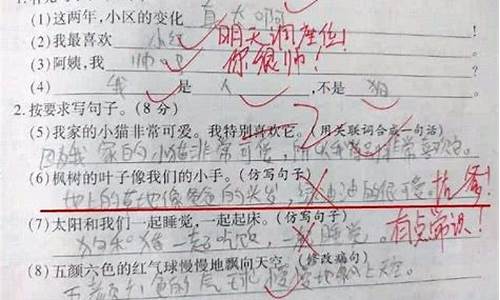 (1)这两年,小区的变化真大啊
(2)我最喜欢小红 明天调座位!
(3)阿姨,我帅吧 你很帅!
(4)我是人,不是狗
2.按要求写句子。(8分)
(5)我家的小猫非常可爱。我特别喜欢它。(用关联词合成一句话)
因为我家的小猫非常可爱,所以我非常喜欢它。
(6)枫树的叶子像我们的小手。(仿写句子)
地上的草地像爸爸的头发,绿油油的很可爱。
(7)太阳和我们一起睡觉,一起起床。(仿写句子)
狗和猪一起吃饭,一起睡觉。 有点常识!
(8)五颜六色的红气球慢慢地飘向天空。(修改病句)
五颜六色的气球慢慢地飘上天空。